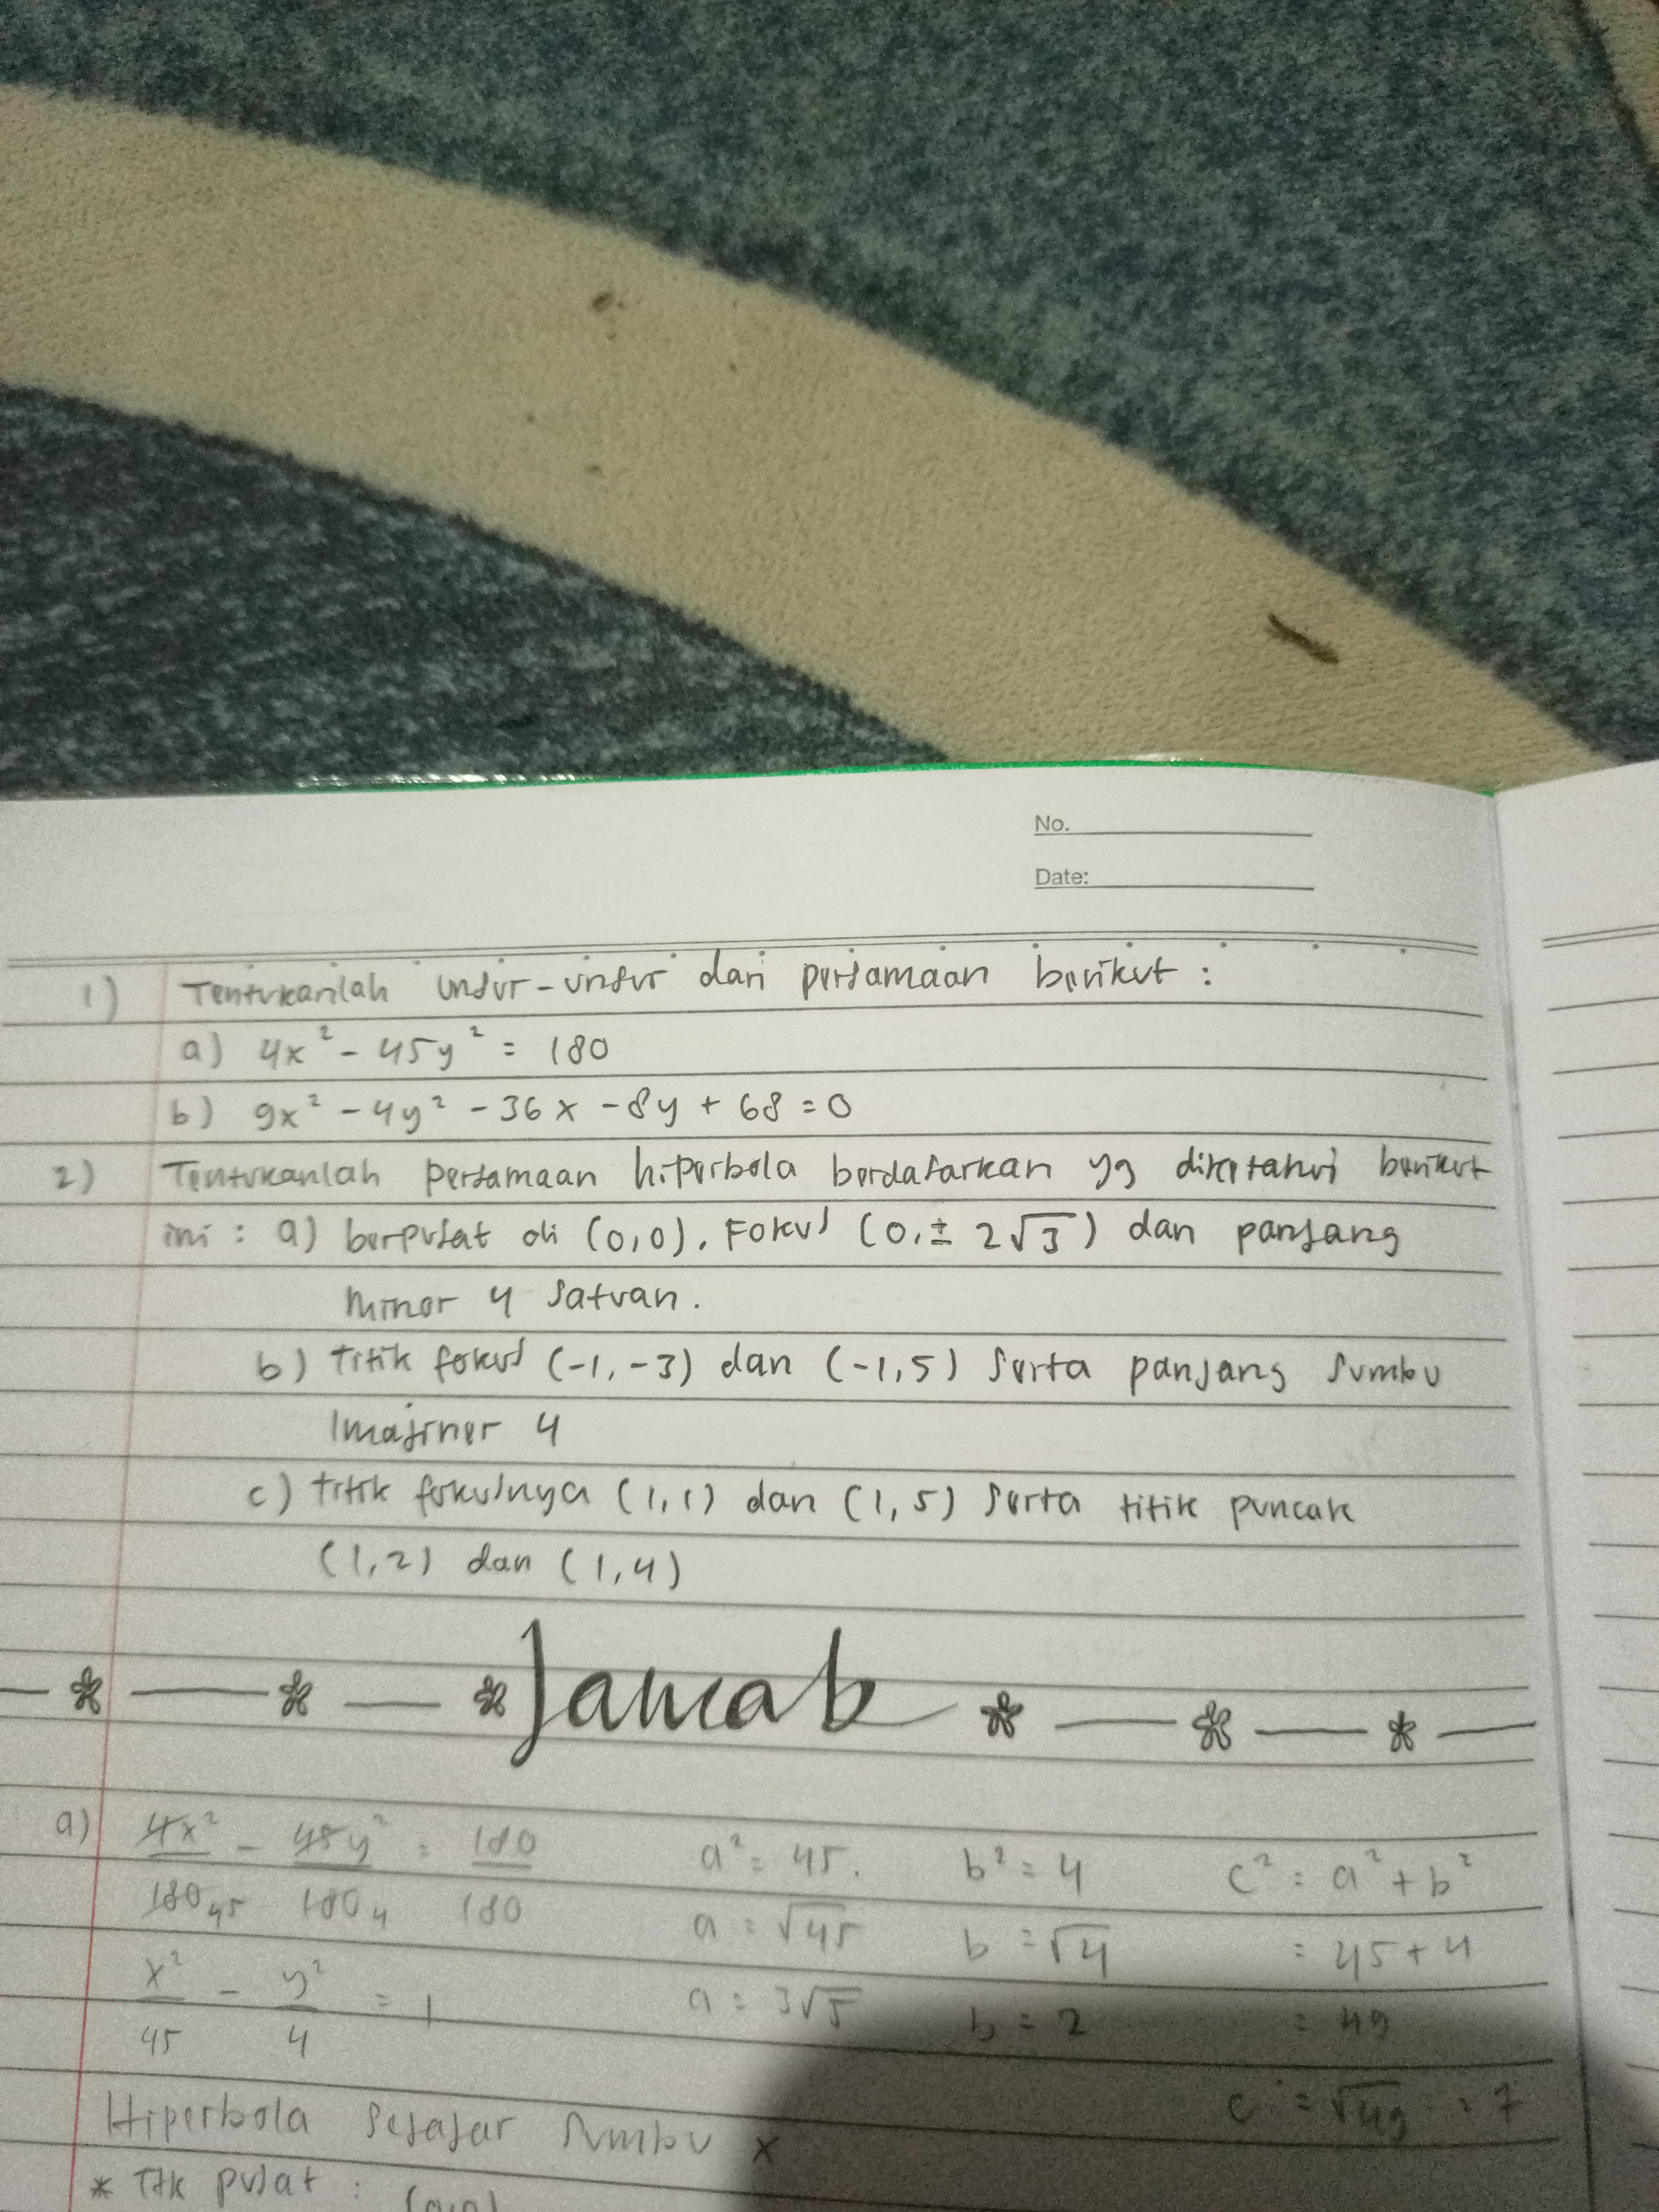 No.
Date:
1) Tentukanlah unsur-unsur dari persamaan berikut :
a) 4x² - 45y² = 180
b) 9x² - 4y² - 36x - 8y + 68 = 0
2) Tentukanlah persamaan hiperbola berdasarkan yg diketahui berikut
ini : a) berpusat di (0,0), Fokus (0, ± 2√3) dan panjang
minor 4 satuan.
b) titik fokus (-1, -3) dan (-1, 5) serta panjang sumbu
Imajiner 4
c) titik fokusnya (1, 1) dan (1, 5) serta titik puncak
(1, 2) dan (1, 4)
Jawab
a) 4x²/180 45 - 45y²/180 4 = 180/180 a² = 45. b² = 4 c² = a² + b²
a = √45 b = √4 = 45 + 4
x²/45 - y²/4 = 1 a = 3√5 b = 2 = 49
c = √49 = 7
Hiperbola sejajar sumbu x
* Ttk pusat :